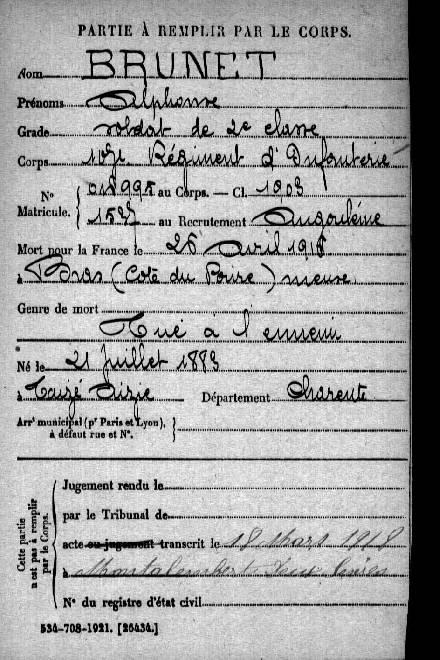 PARTIE À REMPLIR PAR LE CORPS.
Nom BRUNET
Prénoms Alphonse
Grade soldat de 2e classe
Corps 107e Régiment d'Infanterie
N° Matricule. 018998 au Corps. — Cl. 1903
1537 au Recrutement Angoulême
Mort pour la France le 26 Avril 1918
à Bras (Cote du Poivre) meuse
Genre de mort
Tué à l'ennemi
Né le 21 Juillet 1883
à Taizé Aizie Département Charente
Arrt municipal (pr Paris et Lyon), à défaut rue et N°.
Cette partie n'est pas à remplir par le Corps.
Jugement rendu le
par le Tribunal de
acte ou jugement transcrit le 18 Mars 1918
à Montalembert Deux Sèvres
N° du registre d'état civil
534-708-1921. [26434.]